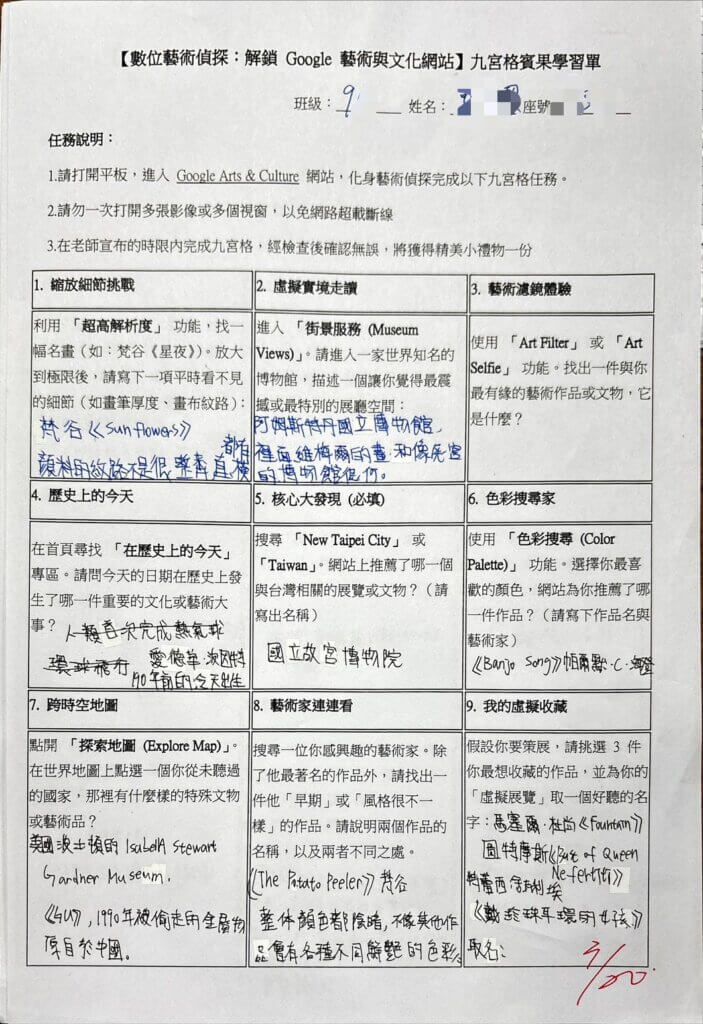 【數位藝術偵探：解鎖 Google 藝術與文化網站】九宮格賓果學習單
班級：9 姓名： 座號
任務說明：
1.請打開平板，進入 Google Arts & Culture 網站，化身藝術偵探完成以下九宮格任務。
2.請勿一次打開多張影像或多個視窗，以免網路超載斷線
3.在老師宣布的時限內完成九宮格，經檢查後確認無誤，將獲得精美小禮物一份
1. 縮放細節挑戰
利用「超高解析度」功能，找一
幅名畫（如：梵谷《星夜》）。放大
到極限後，請寫下一項平時看不見
的細節（如畫筆厚度、畫布紋路）：
梵谷《Sunflowers》
都有
顏料的紋路不是很整齊直、橫
2. 虛擬實境走讀
進入「街景服務 (Museum
Views)」。請進入一家世界知名的
博物館，描述一個讓你覺得最震
撼或最特別的展廳空間：
阿姆斯特丹國立博物館，
裡面維梅爾的畫和像
的博物館
3. 藝術濾鏡體驗
使用「Art Filter」或「Art
Selfie」功能。找出一件與你
最有緣的藝術作品或文物，它
是什麼？
4. 歷史上的今天
在首頁尋找「在歷史上的今天」
專區。請問今天的日期在歷史上發
生了哪一件重要的文化或藝術大
事？人類首次完成熱氣球
環球飛行 愛德華
年前的今天出生
5. 核心大發現 (必填)
搜尋「New Taipei City」或
「Taiwan」。網站上推薦了哪一個
與台灣相關的展覽或文物？（請
寫出名稱）
國立故宮博物院
6. 色彩搜尋家
使用「色彩搜尋 (Color
Palette)」功能。選擇你最喜
歡的顏色，網站為你推薦了哪
一件作品？（請寫下作品名與
藝術家）
《Banjo Song》帕爾默·C·海登
7. 跨時空地圖
點開「探索地圖 (Explore Map)」。
在世界地圖上點選一個你從未聽過
的國家，那裡有什麼樣的特殊文物
或藝術品？
美國波士頓的 IsabellA Stewart
Gardner Museum.
《GU》,1990年被偷走的金屬物
原自於中國。
8. 藝術家連連看
搜尋一位你感興趣的藝術家。除
了他最著名的作品外，請找出一
件他「早期」或「風格很不一
樣」的作品。請說明兩個作品的
名稱，以及兩者不同之處。
《The Potato Peeler》梵谷
整体顏色都陰暗，不像其他作
品會有各種不同鮮艷的色彩。
9. 我的虛擬收藏
假設你要策展，請挑選 3 件
你最想收藏的作品，並為你的
「虛擬展覽」取一個好聽的名
字：馬塞爾·杜尚《Fountain》
圖特摩斯《Bust of Queen
Nefertiti》
《戴珍珠耳環的女孩》
取名：
3/20